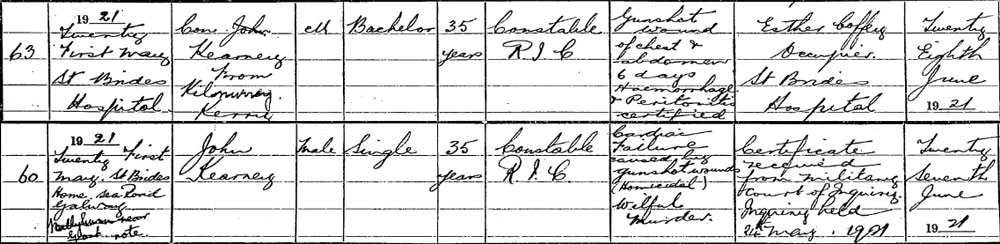 63
1921
Twenty
First May
St Brides
Hospital
Con. John
Kearney
From
Kerry
M
Bachelor
35
years
Constable
R.I.C
Gunshot
wound
of chest &
abdomen
6 days
Haemorrhage
& Peritonitis
certified
Esther Coffey
Occupier.
St Brides
Hospital
Twenty
Eighth
June
1921
60
1921
Twenty First
May. St Brides
Home. Sea Road
Galway
near
note.
John
Kearney
Male
Single
35
years
Constable
R.I.C
Cardiac
Failure
caused by
gunshot wounds
(Homicidal)
Wilful
Murder.
Certificate
received
from Military
Court of Inquiry.
Inquiry held
May. 1921
Twenty
Seventh
June
1921